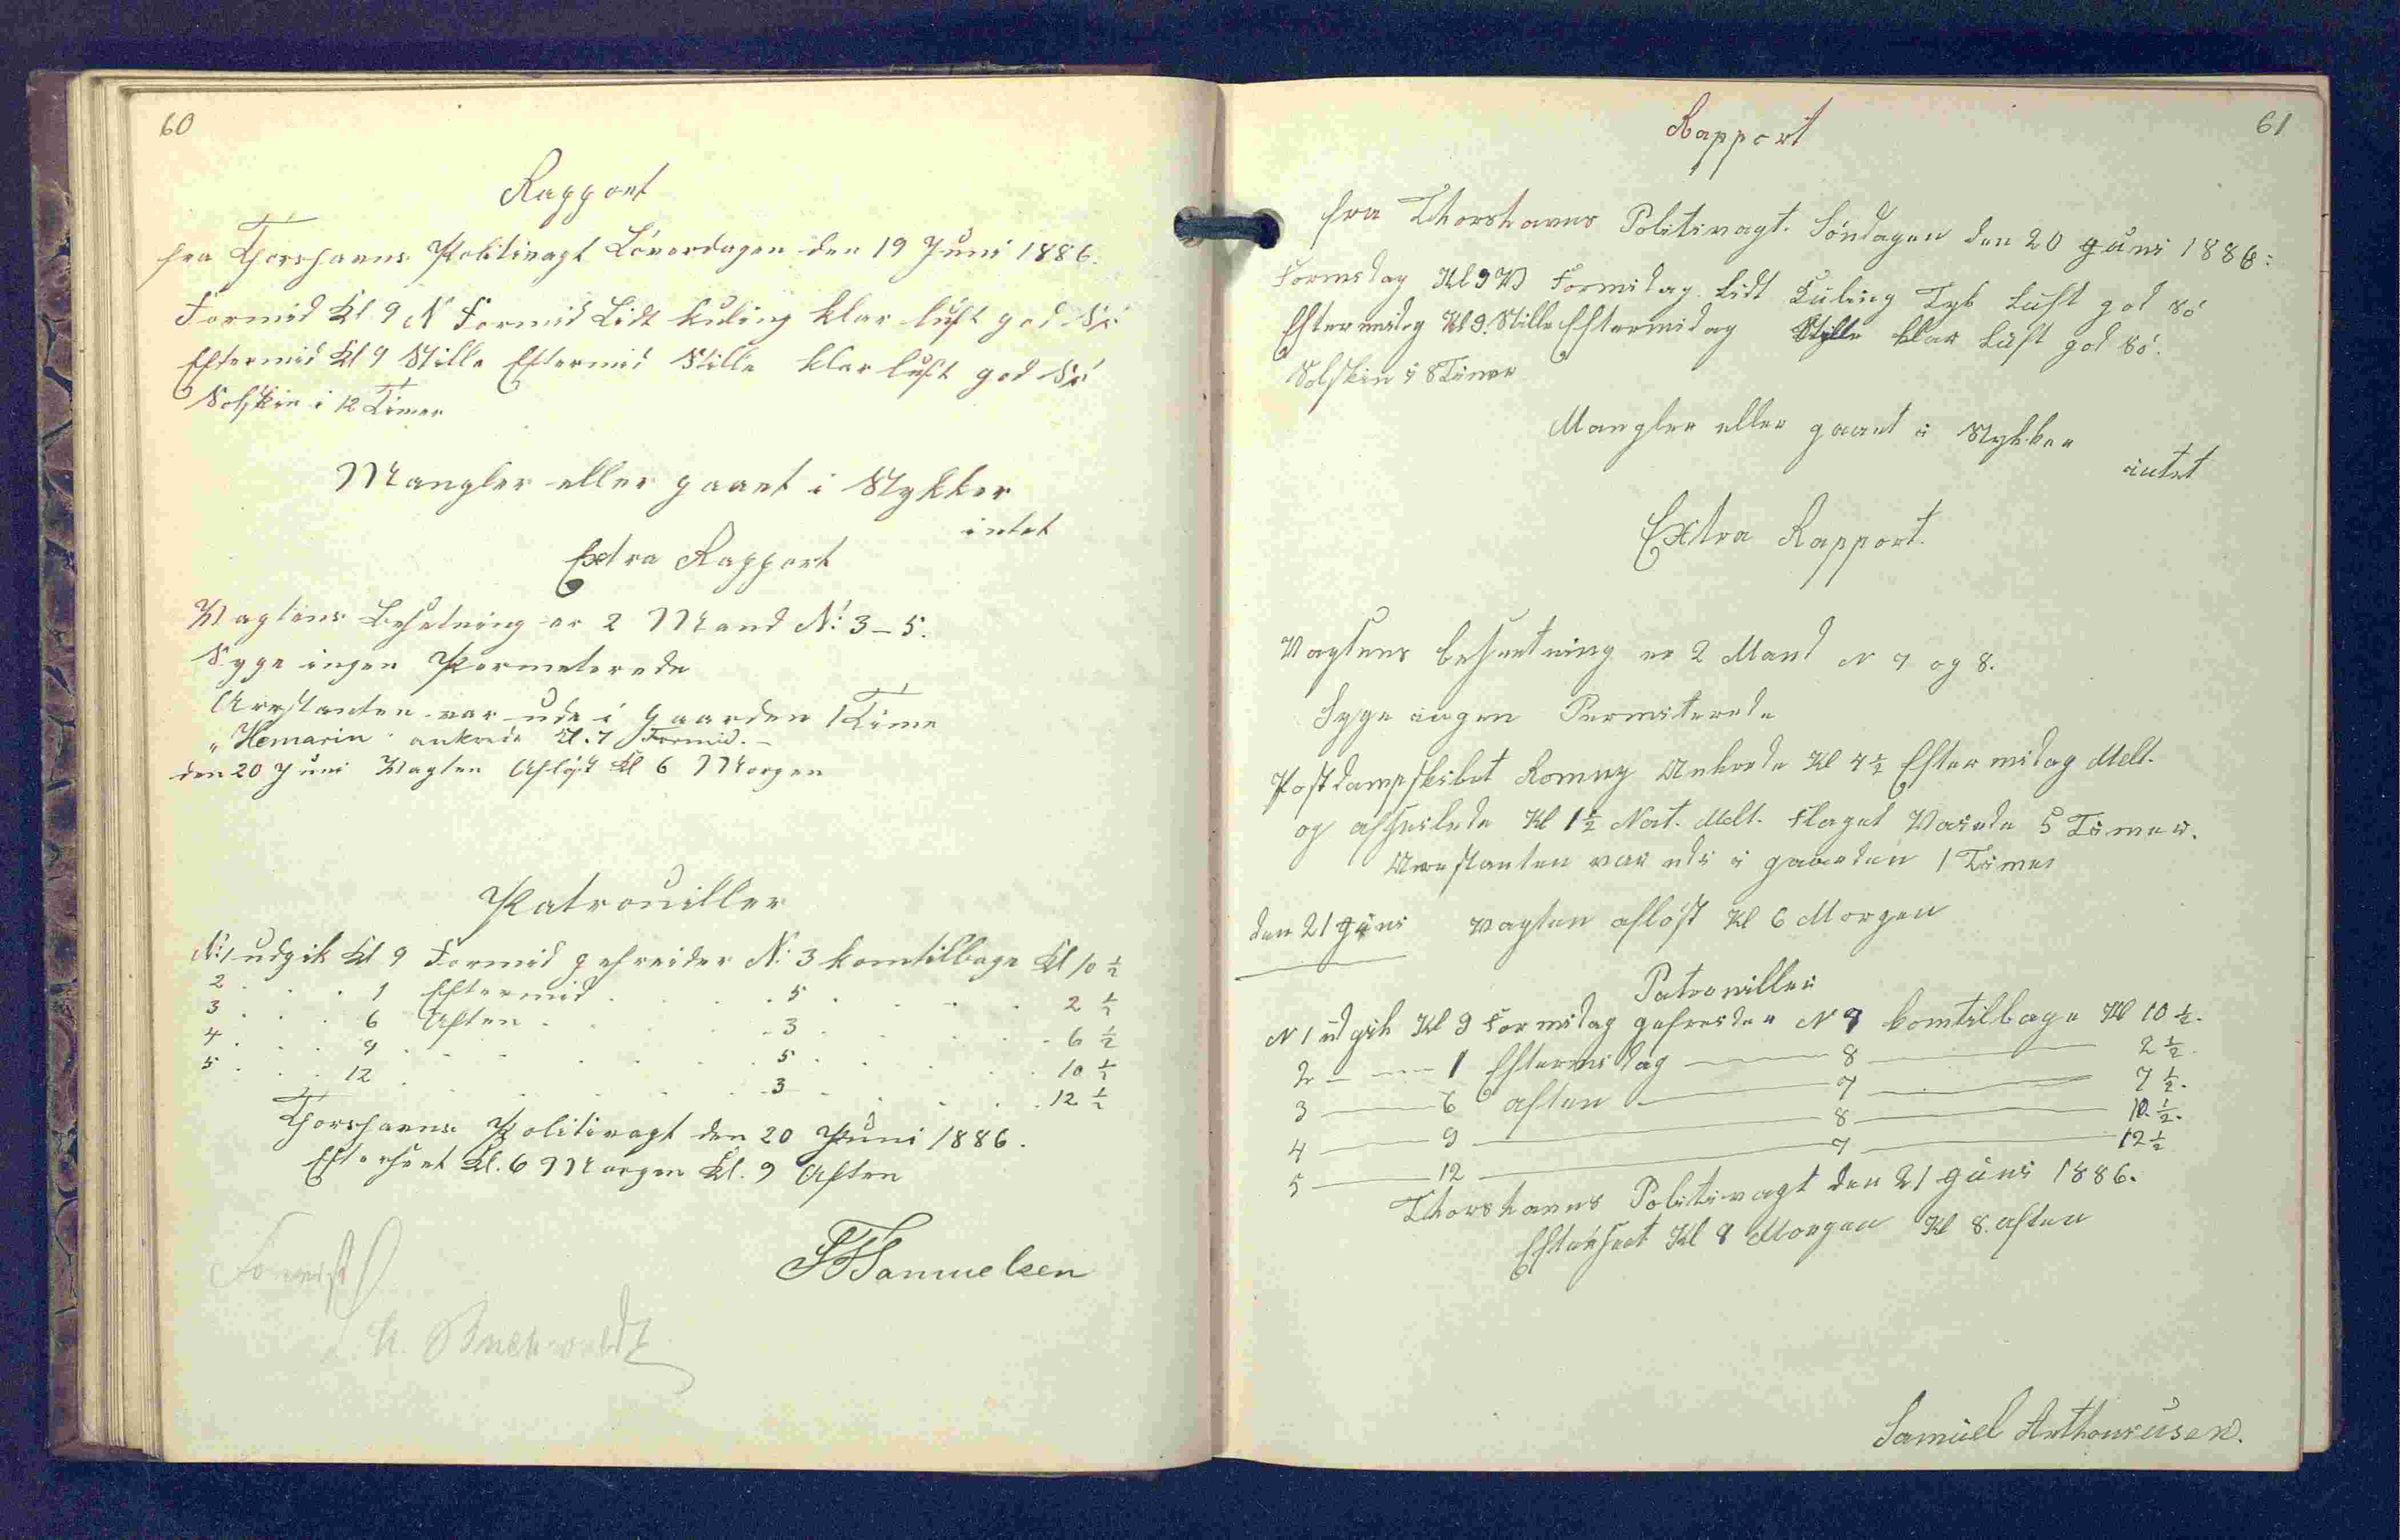 60
Rapport
fra Thorshavns Politivagt Löverdagen den 19 Juni 1886.
Formid Kl 9 N Formid Lidt Kuling klar luft god Sö
Eftermid Kl 9 Stille Eftermid Stille klar luft god Sö
Solskin i 12 Timer
Mangler eller gaaet i Stykker
intet
Extra Rapport
Vagtens Besetning er 2 Mand N: 3-5.
Syge ingen Permeterede
Arrstanten var ude i Gaarden 1 Time
"Hemarin" ankrede Kl. 7 Formid. -
den 20 Juni Vagten Aflöst Kl 6 Morgen
Patrouiller
N: 1 udgik Kl 9 Formid gefreider N: 3 komtilbage Kl 10 ½
2 . . . 1 Eftermid . . . 5 . . . 2 ½
3 . . . 6 Aften . . . 3 . . . 6 ½
4 . . . 9 . . . 5 . . . 10 ½
5 . . . 12 . . . 3 . . . 12 ½
Thorshavns Politivagt den 20 Juni 1886.
Efterseet Kl. 6 Morgen Kl. 9 Aften
Samuelsen
61
Rapport
fra Thorshavns Politivagt. Söndagen den 20 Juni 1886:
Formidag Kl 9 Formidag. Lidt Kuling Tyk Luft god Sö
Eftermidag Kl 9. Stille Eftermidag Stille klar Luft god Sö.
Solskin i 8 Timer
Mangler eller gaaet i Stykker
intet
Extra Rapport.
Vagtens besaetning er 2 Mand N 7 og 8.
Syge ingen Permiterede
Postdampskibet Romny Ankrede Kl 4½ Eftermidag Melt.
og afseilede Kl 1½ Nat. Melt. Flaget Vaiede 5 Timer.
Arrestanten var ude i gaarden 1 Timer
den 21 Juni Vagten aflöst Kl 6 Morgen
Patrouiller
N 1 udgik Kl 9 Formidag gefreider N 7 komtilbage Kl 10 ½.
2 — — 1 Eftermidag — 8 — 2 ½.
3 — 6 aften — 7 — 7 ½.
4 — 9 — 8 — 10 ½.
5 — 12 — 7 — 12 ½
Thorshavns Politivagt den 21 Juni 1886.
Efterseet Kl 8 Morgen Kl 8. aften
Samuel Anthoniusen.